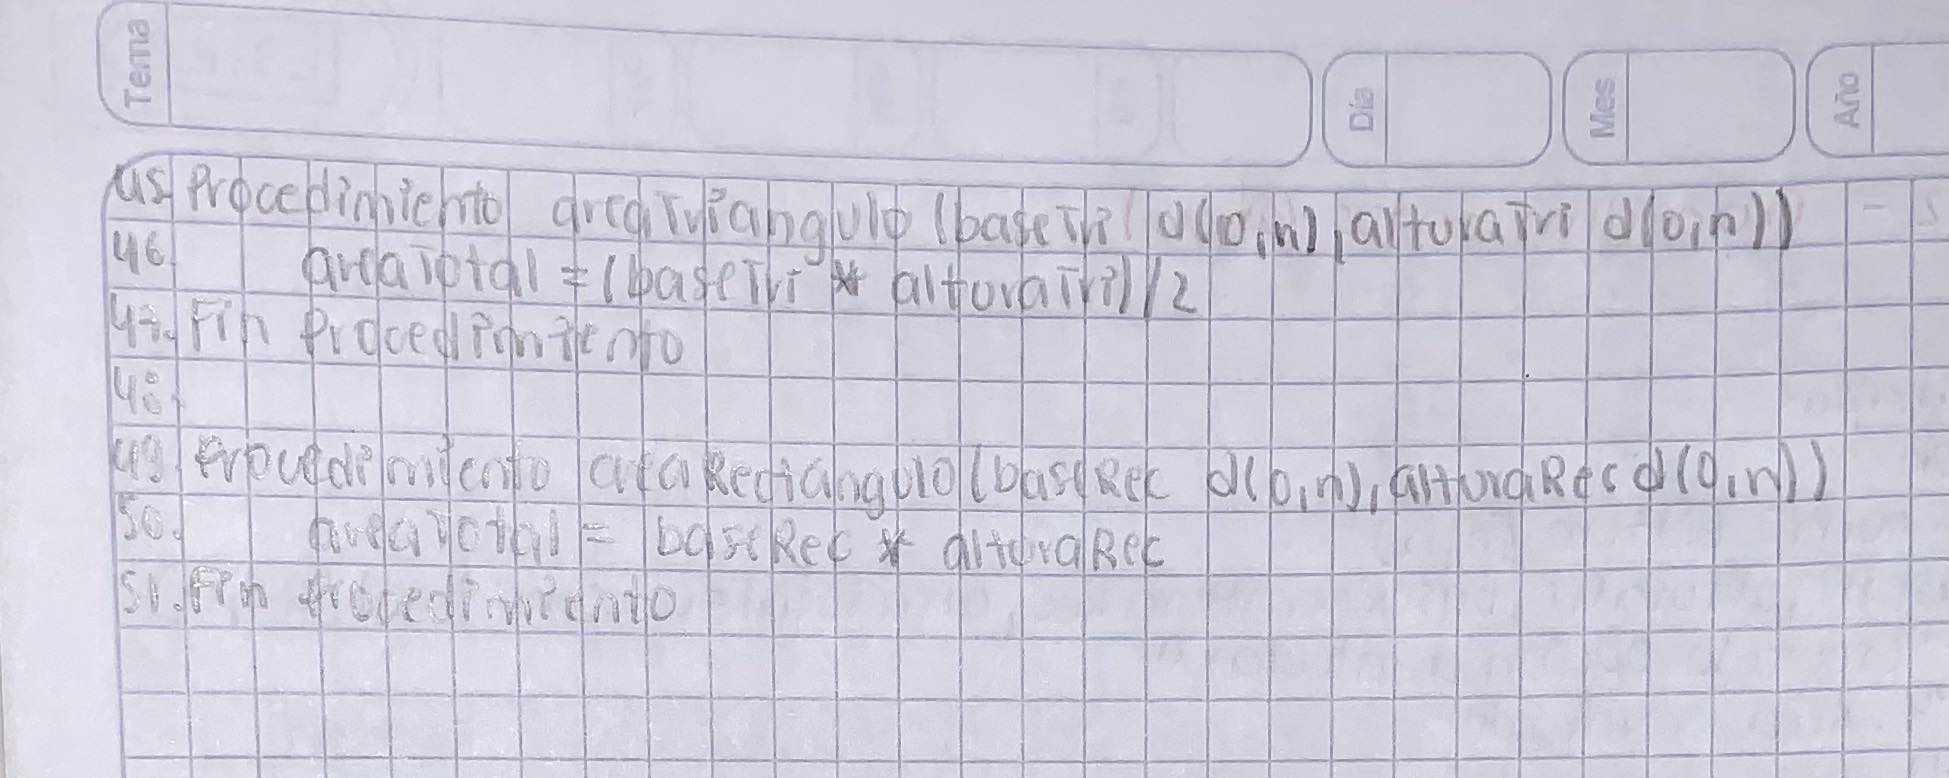 Tema
Día
Mes
Año
45. Procedimiento areaTriangulo (baseTri d(0,n), alturaTri d(0,n))
46. areaTotal = (baseTri * alturaTri) / 2
47. Fin Procedimiento
48.
49. Procedimiento areaRectángulo (baseRec d(0,n), alturaRec d(0,n))
50. areaTotal = baseRec * alturaRec
51. Fin Procedimiento